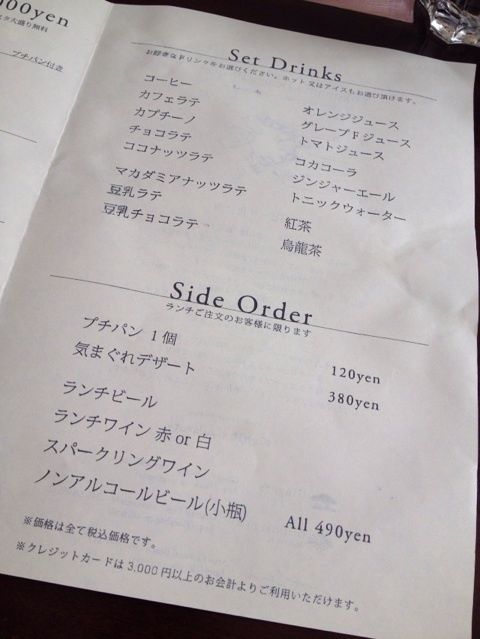 000yen
スタ大盛り無料
プチパン付き
Set Drinks
お好きなドリンクをお選びください。ホット又はアイスもお選び頂けます。
コーヒー
カフェラテ
カプチーノ
チョコラテ
ココナッツラテ
マカダミアナッツラテ
豆乳ラテ
豆乳チョコラテ
オレンジジュース
グレープFジュース
トマトジュース
コカコーラ
ジンジャーエール
トニックウォーター
紅茶
烏龍茶
Side Order
ランチご注文のお客様に限ります
プチパン 1個 120yen
気まぐれデザート 380yen
ランチビール
ランチワイン 赤 or 白
スパークリングワイン
ノンアルコールビール(小瓶) All 490yen
※価格は全て税込価格です。
※クレジットカードは 3,000 円以上のお会計よりご利用いただけます。